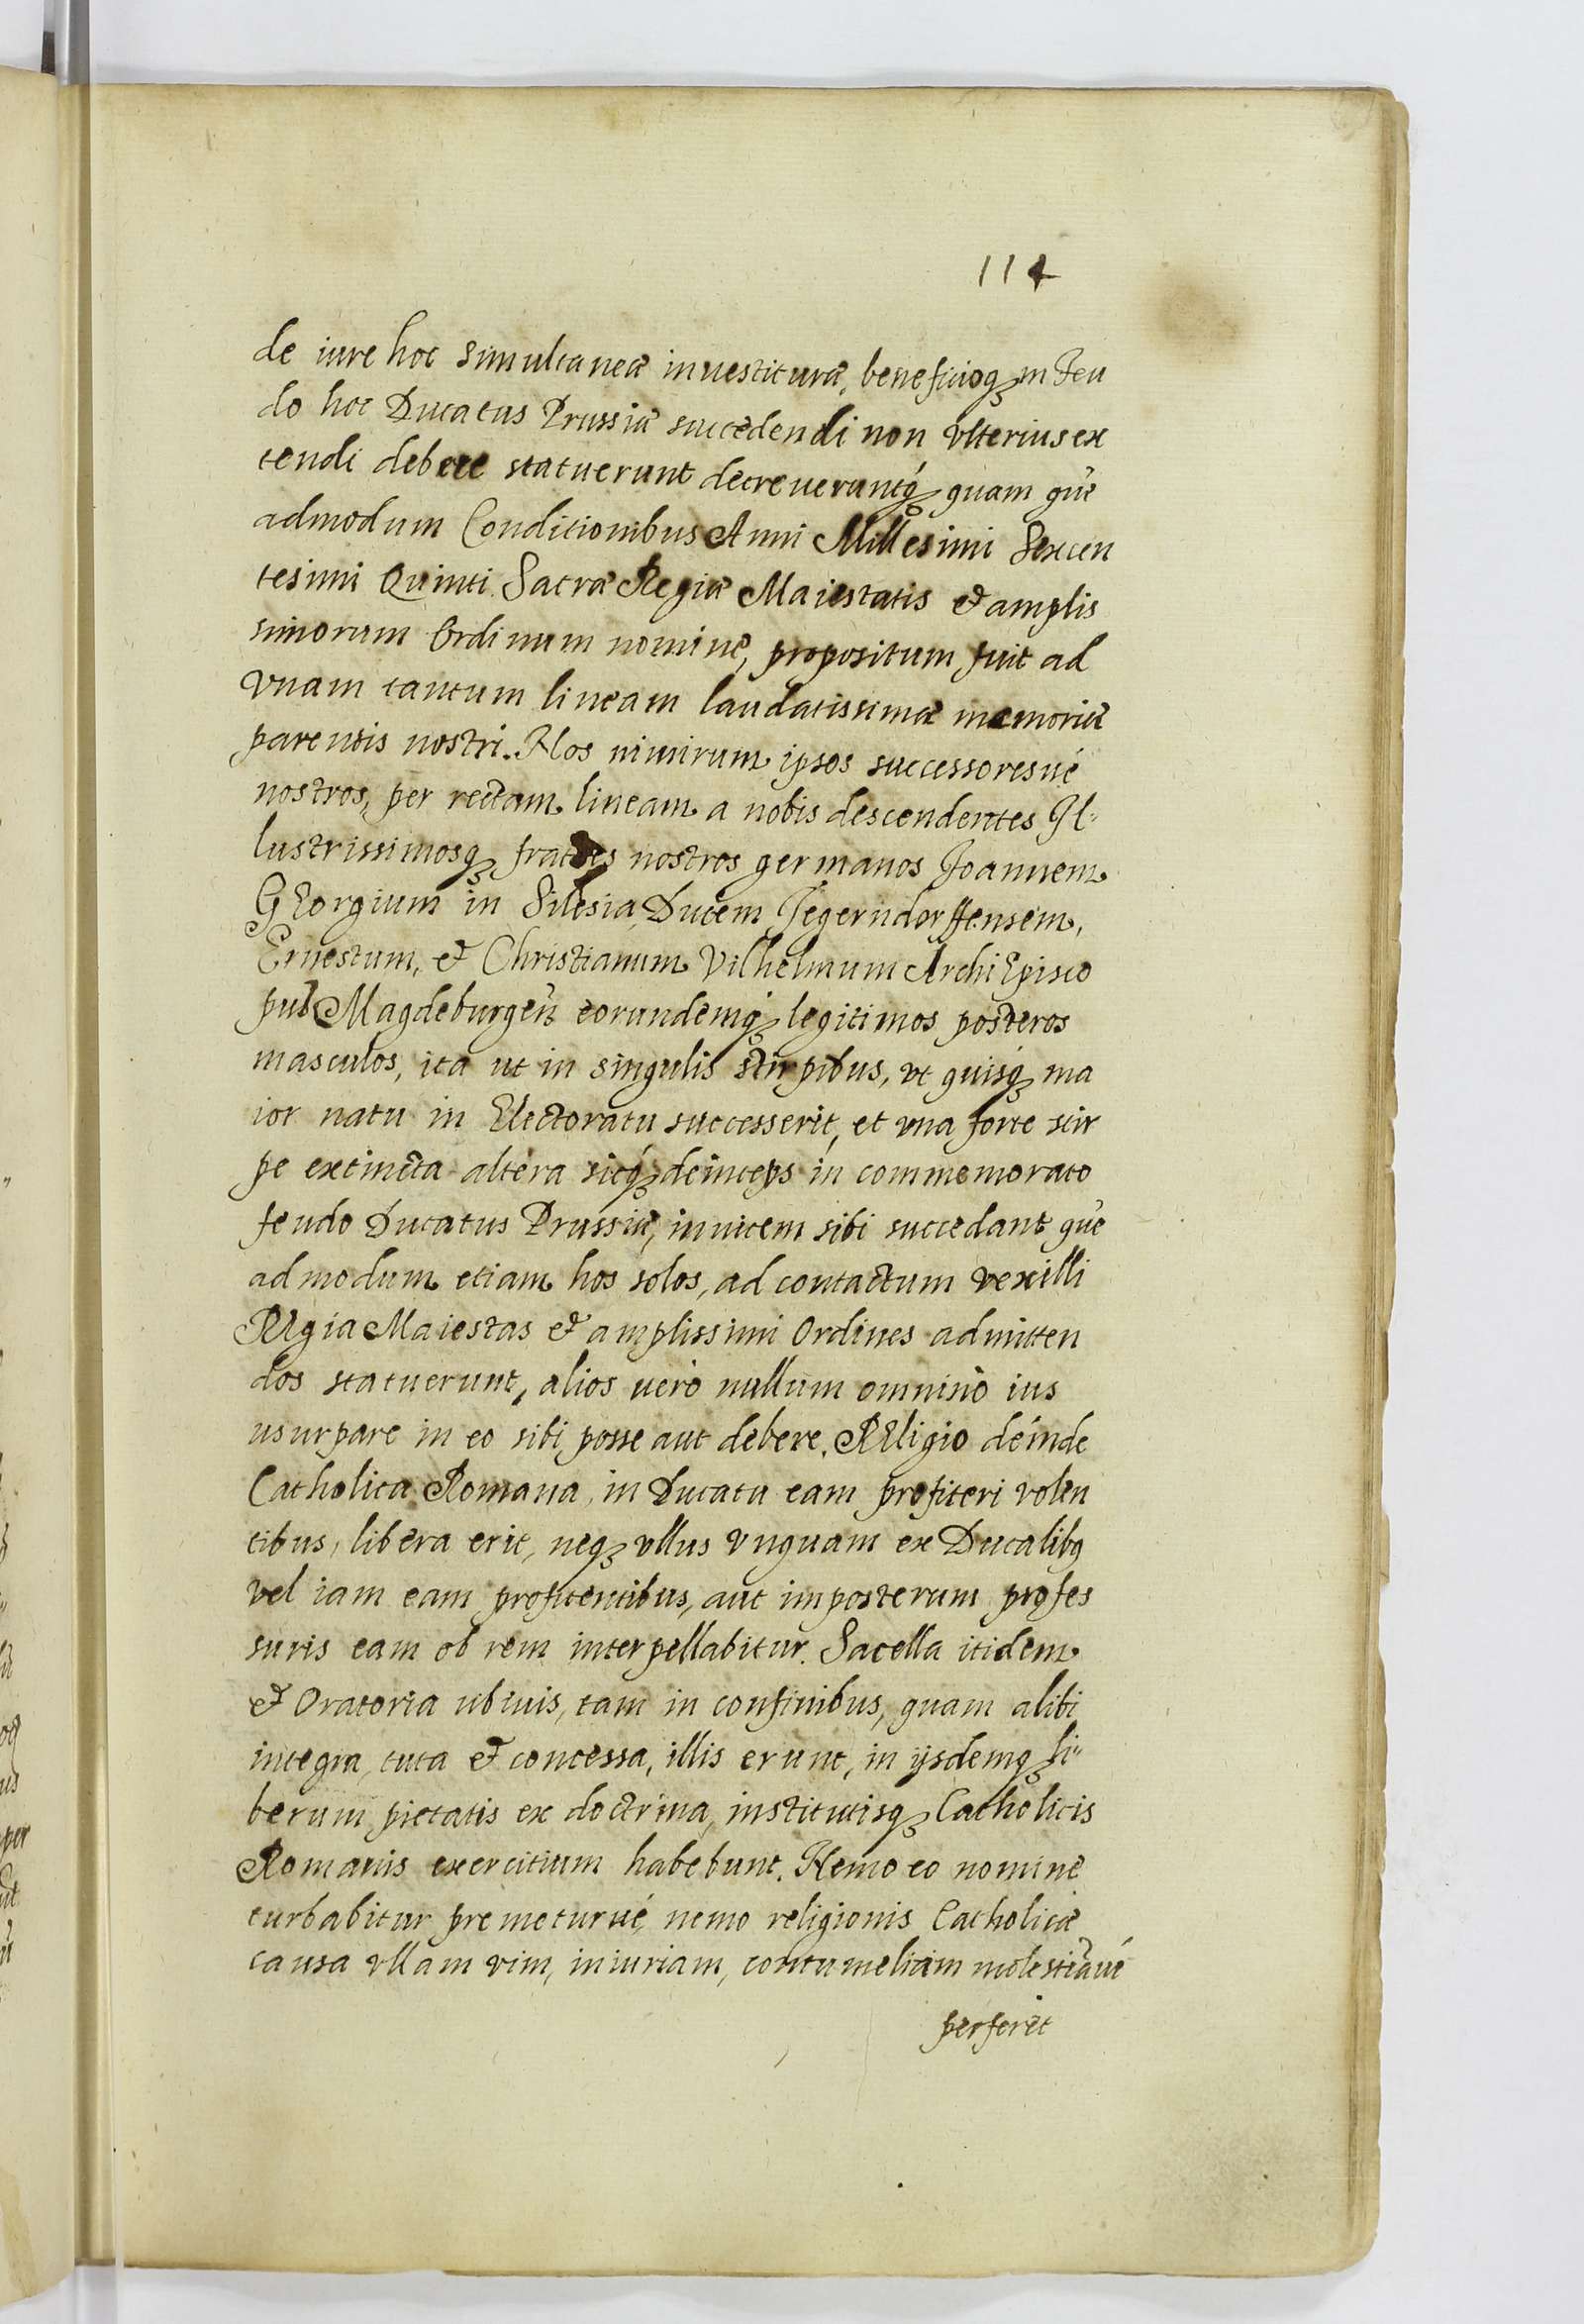 114
de iure hoc simultaneæ inuestituræ, beneficioq; in Feu
do hoc Ducatus Prussiæ succedendi non vlterius ex
tendi debere statuerunt decreueruntq; quam quē
admodum Conditionibus Anni Millesimi Sexcen
tesimi Quinti Sacræ Regiæ Maiestatis et amplis
simorum Ordinum nomine, propositum fuit ad
vnam tantum lineam laudatissimæ memoriæ
parentis nostri. Nos nimirum ipsos successoresué
nostros, per rectam lineam a nobis descendentes Il=
lustrissimosq; fratres nostros germanos Joannem
GEorgium in Silesia Ducem Jegerndorffensem,
Ernestum, et Christianum Vilhelmum ArchiEpisco
pū Magdeburgeñ eorundemq; legitimos posteros
masculos, ita ut in singulis stirpibus, vt quisq; ma
ior natu in Electoratu successerit, et vna forte stir
pe extincta altera sicq; deinceps in commemorato
feudo Ducatus Prussiæ, inuicem sibi succedant quē
admodum etiam hos solos, ad contactum vexilli
REgia Maiestas et amplissimi Ordines admitten
dos statuerunt, alios uerò nullum omninò ius
usurpare in eo sibi posse aut debere. REligio deinde
Catholica Romana, in Ducatu eam profiteri volen
tibus, libera erit, neq; vllus vnquam ex Ducalibq
vel iam eam profitentibus, aut imposterum profes
suris eam ob rem interpellabitur. Sacella itidem
et Oratoria ubiuis, tam in confinibus, quam alibi
integra, tuta et concessa, illis erunt, in ijsdemq; li=
berum pietatis ex doctrina, institutisq; Catholicis
Romanis exercitium habebunt. Nemo eo nomine
turbabitur premeturué, nemo religionis Catholicæ
causa vllam vim, iniuriam, contumeliam molestiāué
perferet